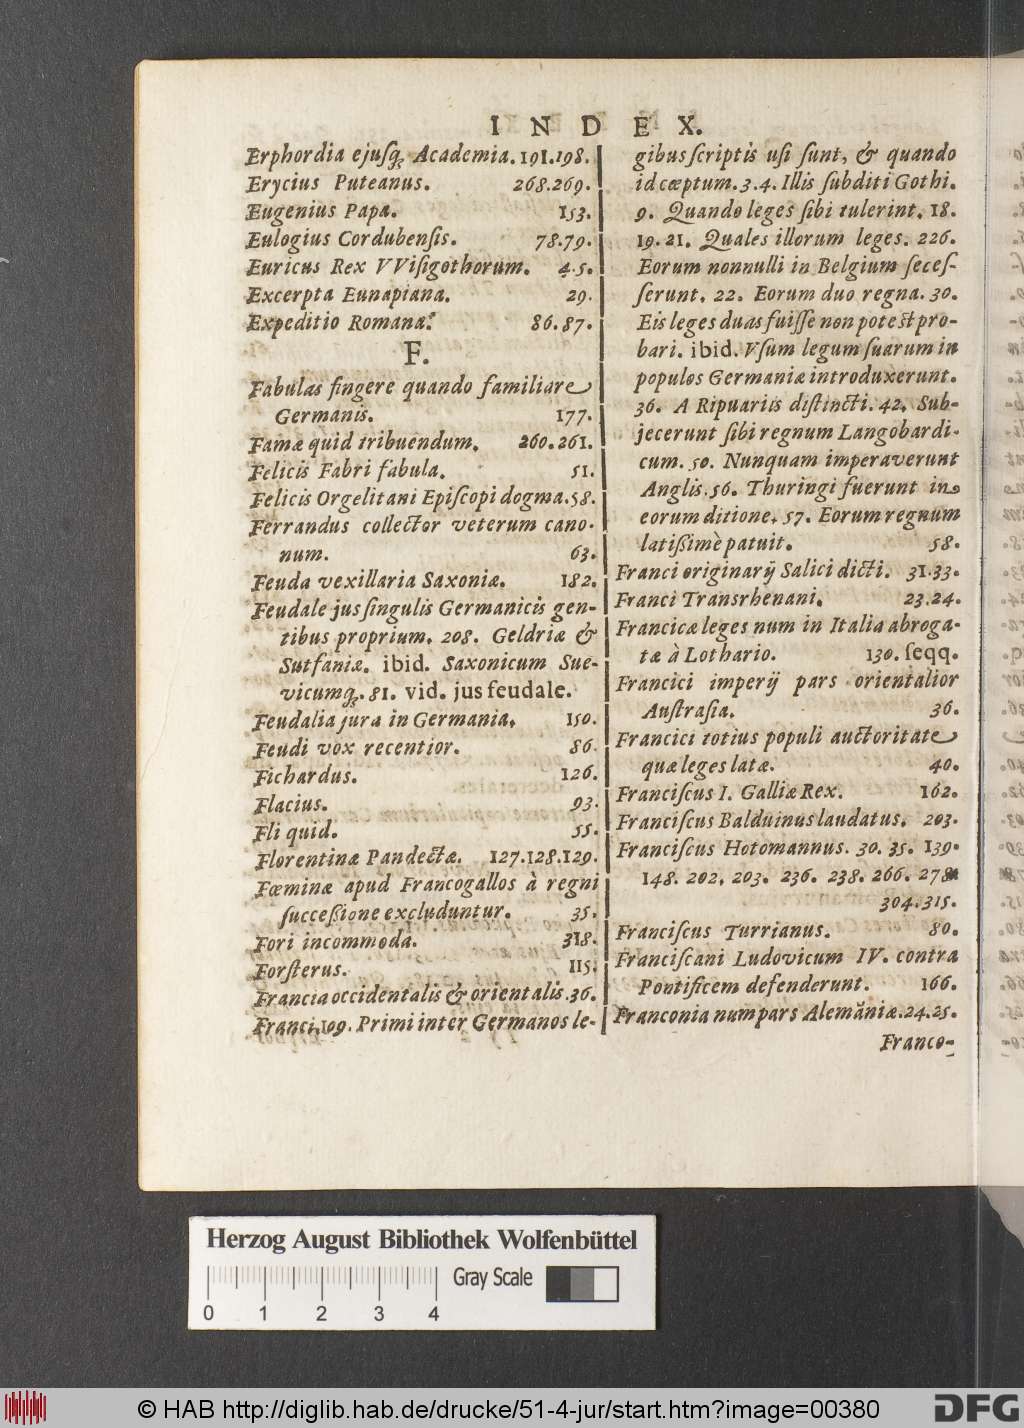 INDEX.
Erphordia ejusq; Academia. 191.198.
Erycius Puteanus. 268.269.
Eugenius Papa. 153.
Eulogius Cordubenſis. 78.79.
Euricus Rex VViſigothorum. 4.5.
Excerpta Eunapiana. 29.
Expeditio Romana. 86.87.
F.
Fabulas fingere quando familiare
Germanis. 177.
Famæ quid tribuendum. 260.261.
Felicis Fabri fabula. 51.
Felicis Orgelitani Epiſcopi dogma. 58.
Ferrandus collector veterum cano-
num. 63.
Feuda vexillaria Saxoniæ. 182.
Feudale jus ſingulis Germanicis gen-
tibus proprium. 208. Geldriæ &
Sutfaniæ. ibid. Saxonicum Sue-
vicumq;. 81. vid. jus feudale.
Feudalia jura in Germania. 150.
Feudi vox recentior. 86.
Fichardus. 126.
Flacius. 93.
Fli quid. 55.
Florentinæ Pandectæ. 127.128.129.
Fœminæ apud Francogallos à regni
ſucceßione excluduntur. 35.
Fori incommoda. 318.
Forſterus. 115.
Francia occidentalis & orientalis. 36.
Franci. 109. Primi inter Germanos le-
gibus ſcriptis uſi ſunt, & quando
id cœptum. 3.4. Illis ſubditi Gothi.
9. Quando leges ſibi tulerint. 18.
19.21. Quales illorum leges. 226.
Eorum nonnulli in Belgium ſeceſ-
ſerunt. 22. Eorum duo regna. 30.
Eis leges duas fuiſſe non potest pro-
bari. ibid. Vſum legum ſuarum in
populos Germaniæ introduxerunt.
36. A Ripuariis diſtincti. 42. Sub-
jecerunt ſibi regnum Langobardi-
cum. 50. Nunquam imperaverunt
Anglis. 56. Thuringi fuerunt in
eorum ditione. 57. Eorum regnum
latißimè patuit. 58.
Franci originarij Salici dicti. 31.33.
Franci Transrhenani. 23.24.
Francicæ leges num in Italia abroga-
tæ à Lothario. 130. ſeqq.
Francici imperij pars orientalior
Auſtraſia. 36.
Francici totius populi auctoritate
quæ leges latæ. 40.
Franciſcus I. Galliæ Rex. 162.
Franciſcus Balduinus laudatus. 203.
Franciſcus Hotomannus. 30. 35. 139.
148. 202. 203. 236. 238. 266. 278.
304.315.
Franciſcus Turrianus. 80.
Franciſcani Ludovicum IV. contra
Pontificem defenderunt. 166.
Franconia num pars Alemaniæ. 24.25.
Franco-
Herzog August Bibliothek Wolfenbüttel
Gray Scale
0 1 2 3 4
© HAB http://diglib.hab.de/drucke/51-4-jur/start.htm?image=00380
DFG